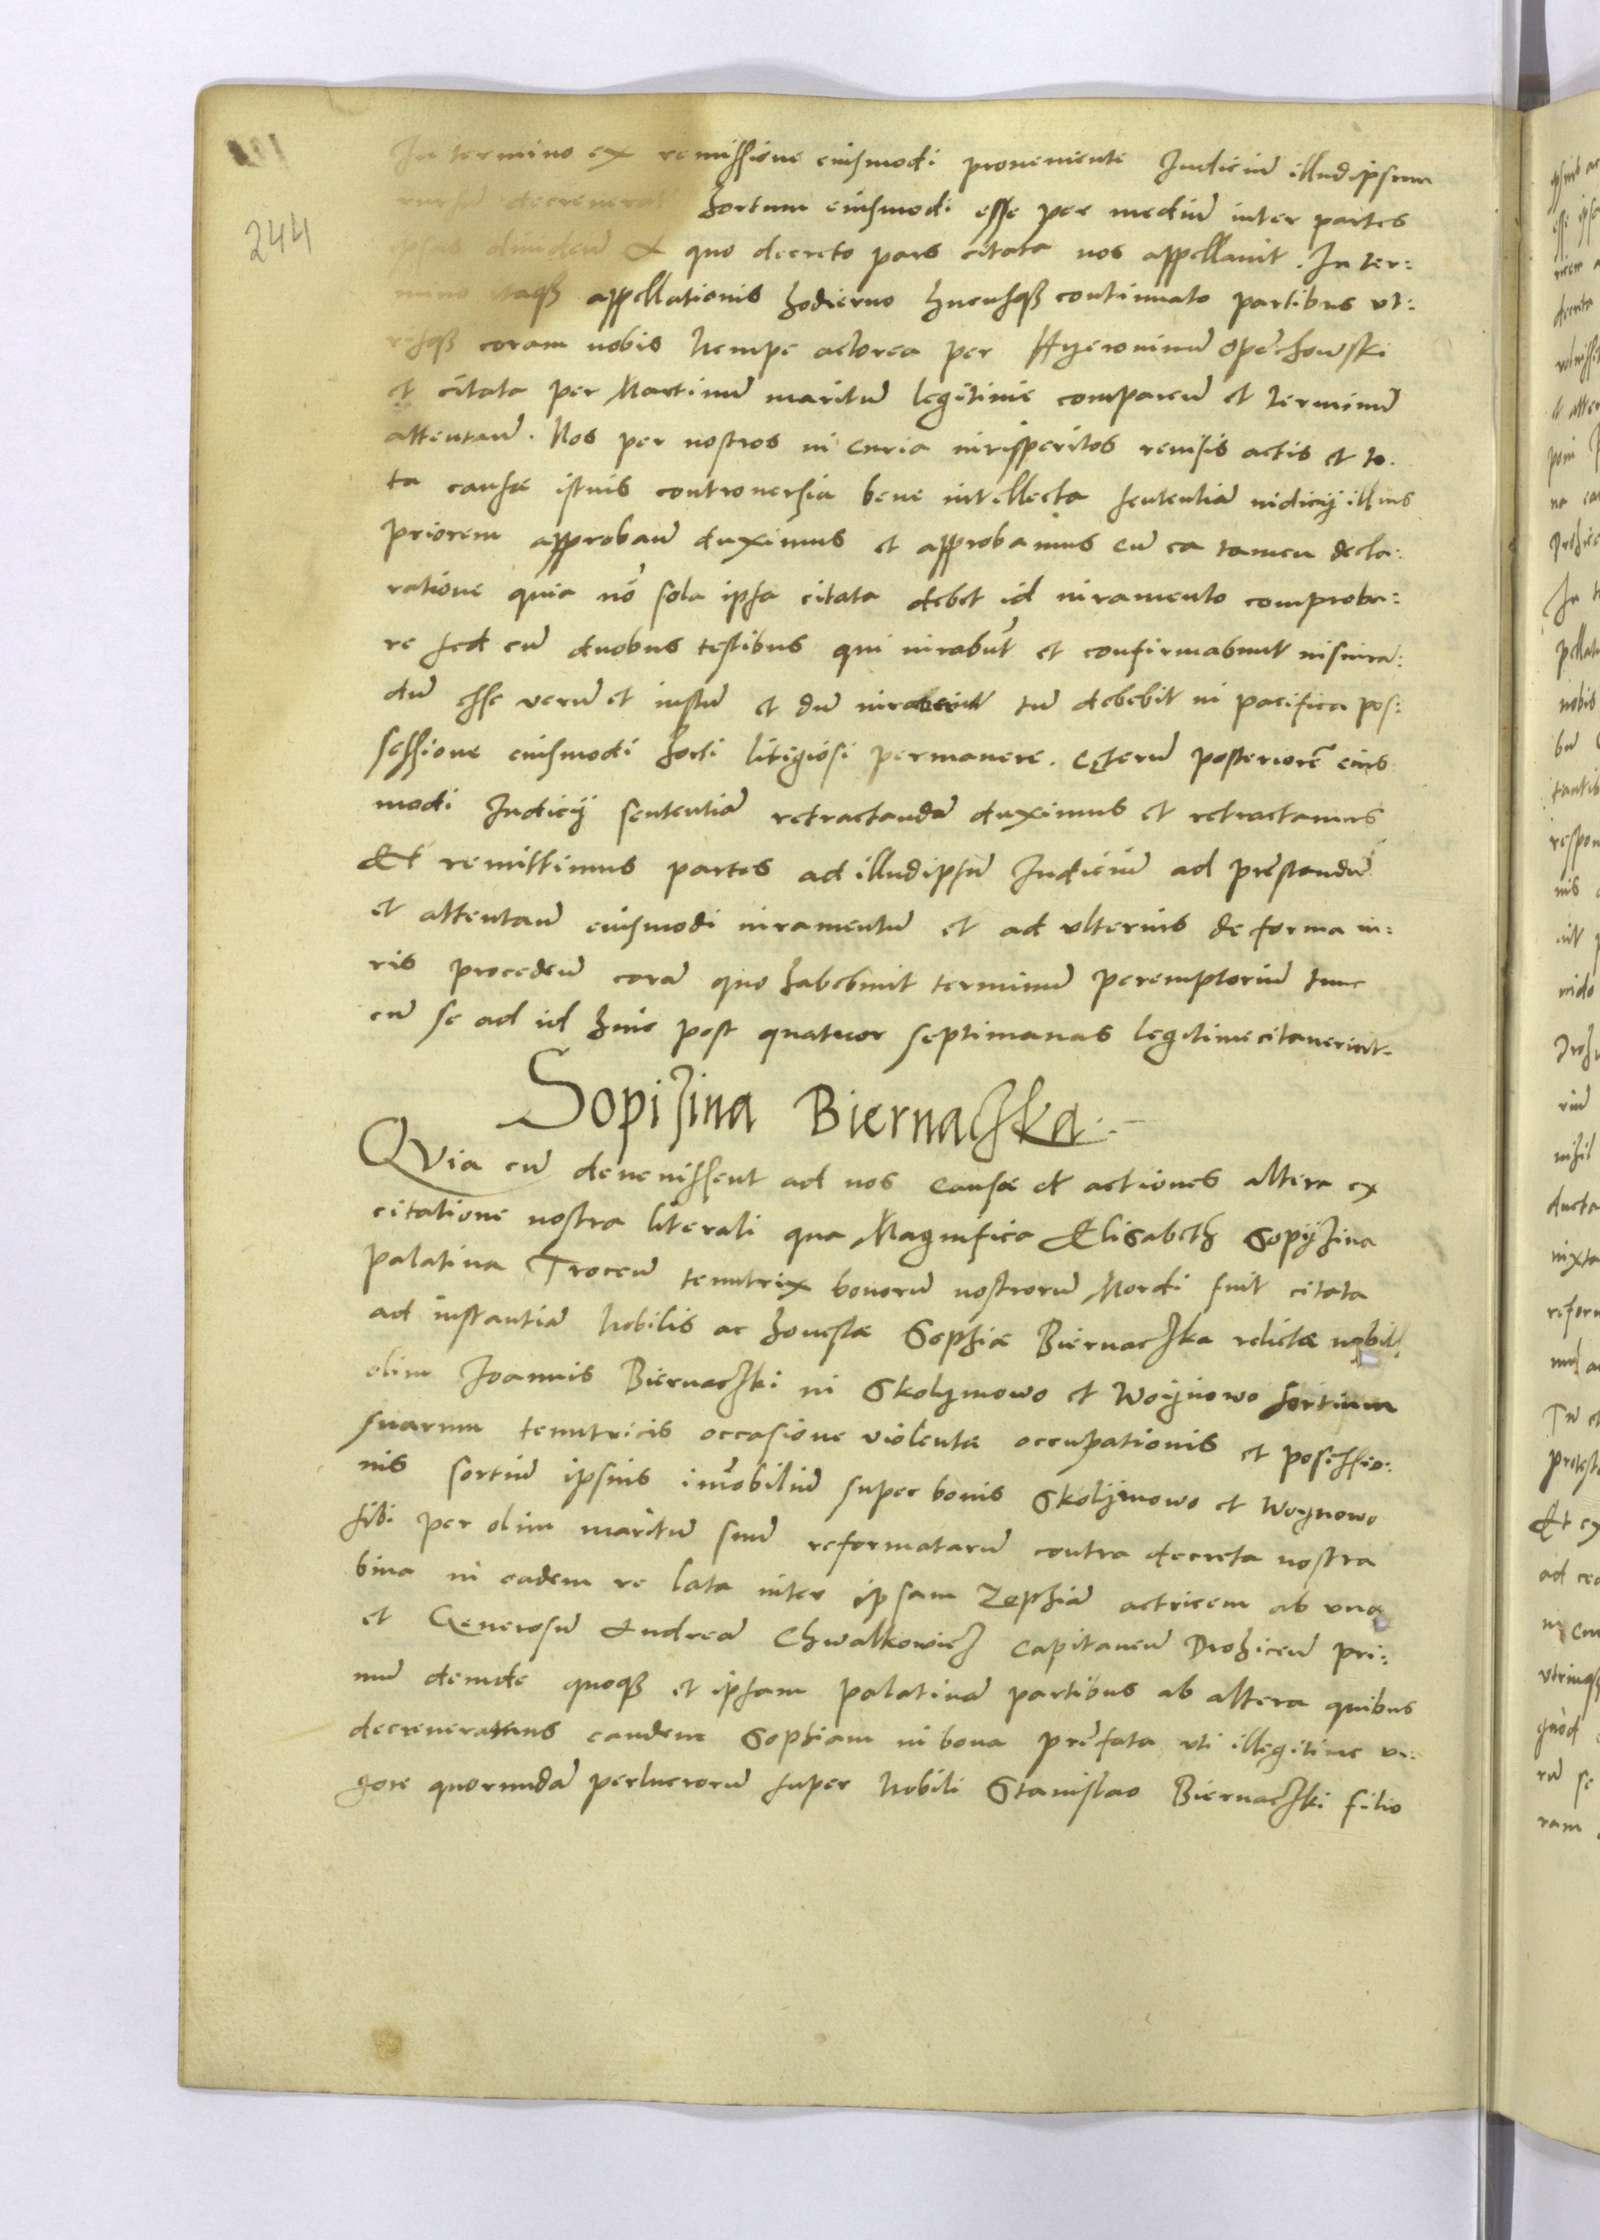 244
In termino ex remissione eiusmodi proveniente Iudiciũ illudipsum
rursũ decreverat hortum eiusmodi esse per mediũ inter partes
ipsas dividendũ A quo decreto pars citata nos appellavit. In ter:
mino itaqȝ appellationis hodierno hucusqȝ continuato partibus ut:
risqȝ coram nobis Nempe actorea per Hyeronimũ Opechowski
et citata per Martinũ maritũ legitime comparẽn et terminũ
attentaũ. Nos per nostros in Curia iurisperitos revisis actis et to.
ta causæ istius controversia bene intellecta sententiã iudicij illius
priorem approbaũ duximus et approbamus Cũ ea tamen decla:
ratione quia nõ sola ipsa citata debet id iuramento comproba:
re sed cũ duobus testibus qui iurabũt et confirmabunt iusiura:
dũ esse verũ et iustũ et dũ iuraverint tũ debebit in pacifica pos:
sessione eiusmodi horti litigiosi permanere. Cęterũ posteriorẽ eius
modi Iudicij sententiã retractandã duximus et retractamus
Et remittimus partes ad illudipsũ Iudiciũ ad præstandũ
et attentaũ eiusmodi iuramentũ et ad ulterius de forma iu:
ris procedeũ corã quo habebunt terminũ peremptoriũ tunc
cũ se ad id huic post quatuor septimanas legitime citaverint.
Sopizina Biernaczka
Quia cũ devenissent ad nos causæ et actiones altera ex
citatione nostra literali qua Magnifica Elisabeth Sopijzina
palatina Troceũ tenutrix bonorũ nostrorũ Mordi fuit citata
ad instantiã Nobilis ac honestæ Sophiæ Biernaczka relictæ nobil
olim Joannis Biernaczki in Skolymowo et Woijnowo sortium
suarum tenutricis occasione violentæ occupationis et possessio:
nis sortiũ ipsius im̃obiliũ super bonis Skolijmowo et Woynowo
sibi per olim maritũ suũ reformatarũ contra decreta nostra
bina in eadem re lata inter ipsam Zophiã actricem ab una
et Generosũ Andreã Chwalkowicz Capitaneũ Drohiceũ pri:
mũ deinde quoqȝ et ipsam palatinã partibus ab altera quibus
decreveramus eandem Sophiam in bona præfata uti illegitime vi:
gore quorundã perlucrorũ super Nobili Stanislao Biernaczki filio